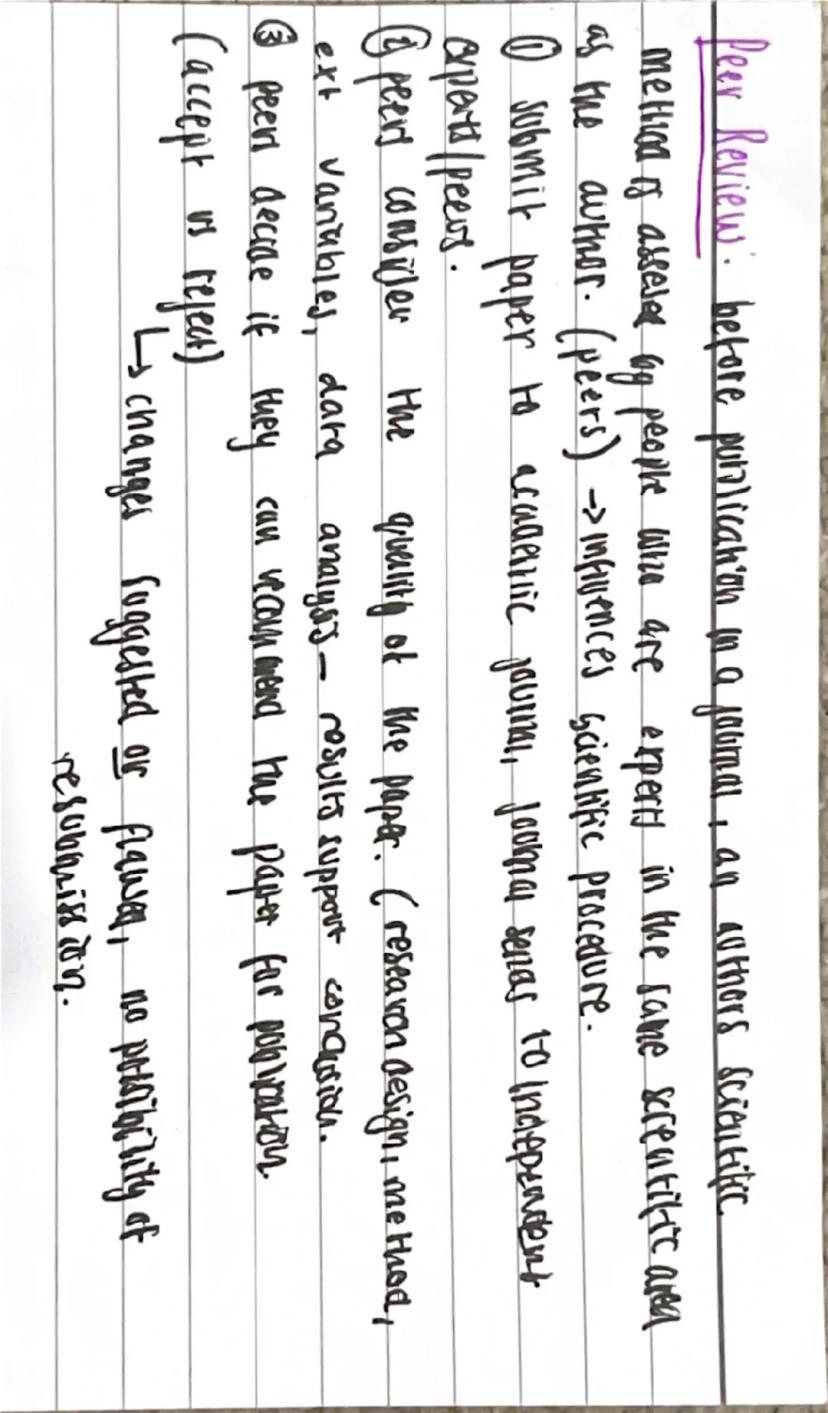 Peer Review: before publication in a journal, an authors scientific
method is assesed by people who are experts in the same scientific area
as the author. (peers) → influences scientific procedure.
① submit paper to academic journal, journal sends to independent
experts/peers.
② peers consider the quality of the paper. (research design, method,
ext variables, data analysis – results support conclusion.
③ peers decide if they can recommend the paper for publication
(accept vs reject)
↳ changes suggested or flawed, no possibility of
resubmission.